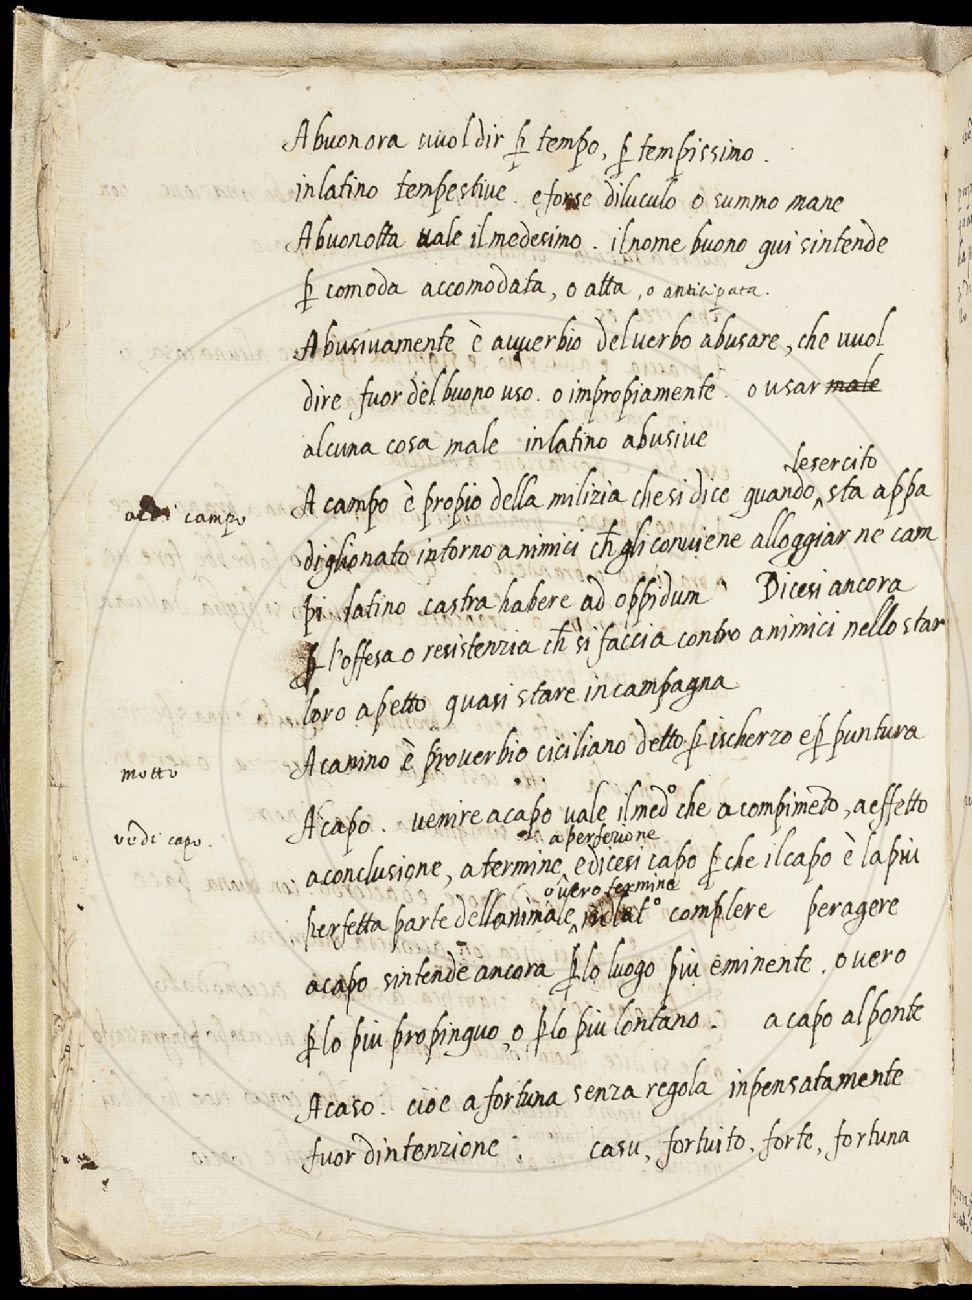 Abuonora vuol dir ꝑ tempo, ꝑ tempissimo.
in latino tempestive. e forse diluculo o summo mane
Abuonotta vale il medesimo. il nome buono qui sintende
ꝑ comoda accomodata, o atta, o anticipata.
Abusivamente è avverbio del verbo abusare, che vuol
dire fuor del buono uso. o impropiamente. o usar male
alcuna cosa male in latino abusive
lesercito
A campo è propio della milizia che si dice quando sta appa
vedi campo
diglionato intorno a nimici ch̄ gli conviene alloggiar ne cam
pi latino castra habere ad oppidum Dicesi ancora
ꝑ l'offesa o resistenzia ch̄ si faccia contro a nimici nello star
loro apetto quasi stare in campagna
A canino è proverbio ciciliano detto ꝑ ischerzo e ꝑ puntura
motto
A capo. venire a capo vale il medo che a compimeto, a effetto
vedi capo.
a perfezione
a conclusione, a termine, e dicesi capo ꝑ che il capo è la più
o vero termine
perfetta parte dell animale, in lato complere peragere
a capo sintende ancora ꝑ lo luogo più eminente. o vero
ꝑ lo più propinquo, o, ꝑ lo più lontano. a capo al ponte
A caso. cioè a fortuna senza regola inpensatamente
fuor dintenzione: casu, fortuito, forte, fortuna